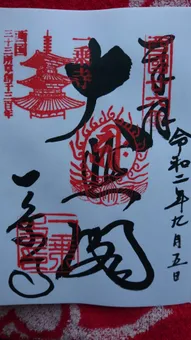 奉拝
令和二年九月五日
大悲閣
一乗寺
西国
三十三所草創千三百年
一乗寺